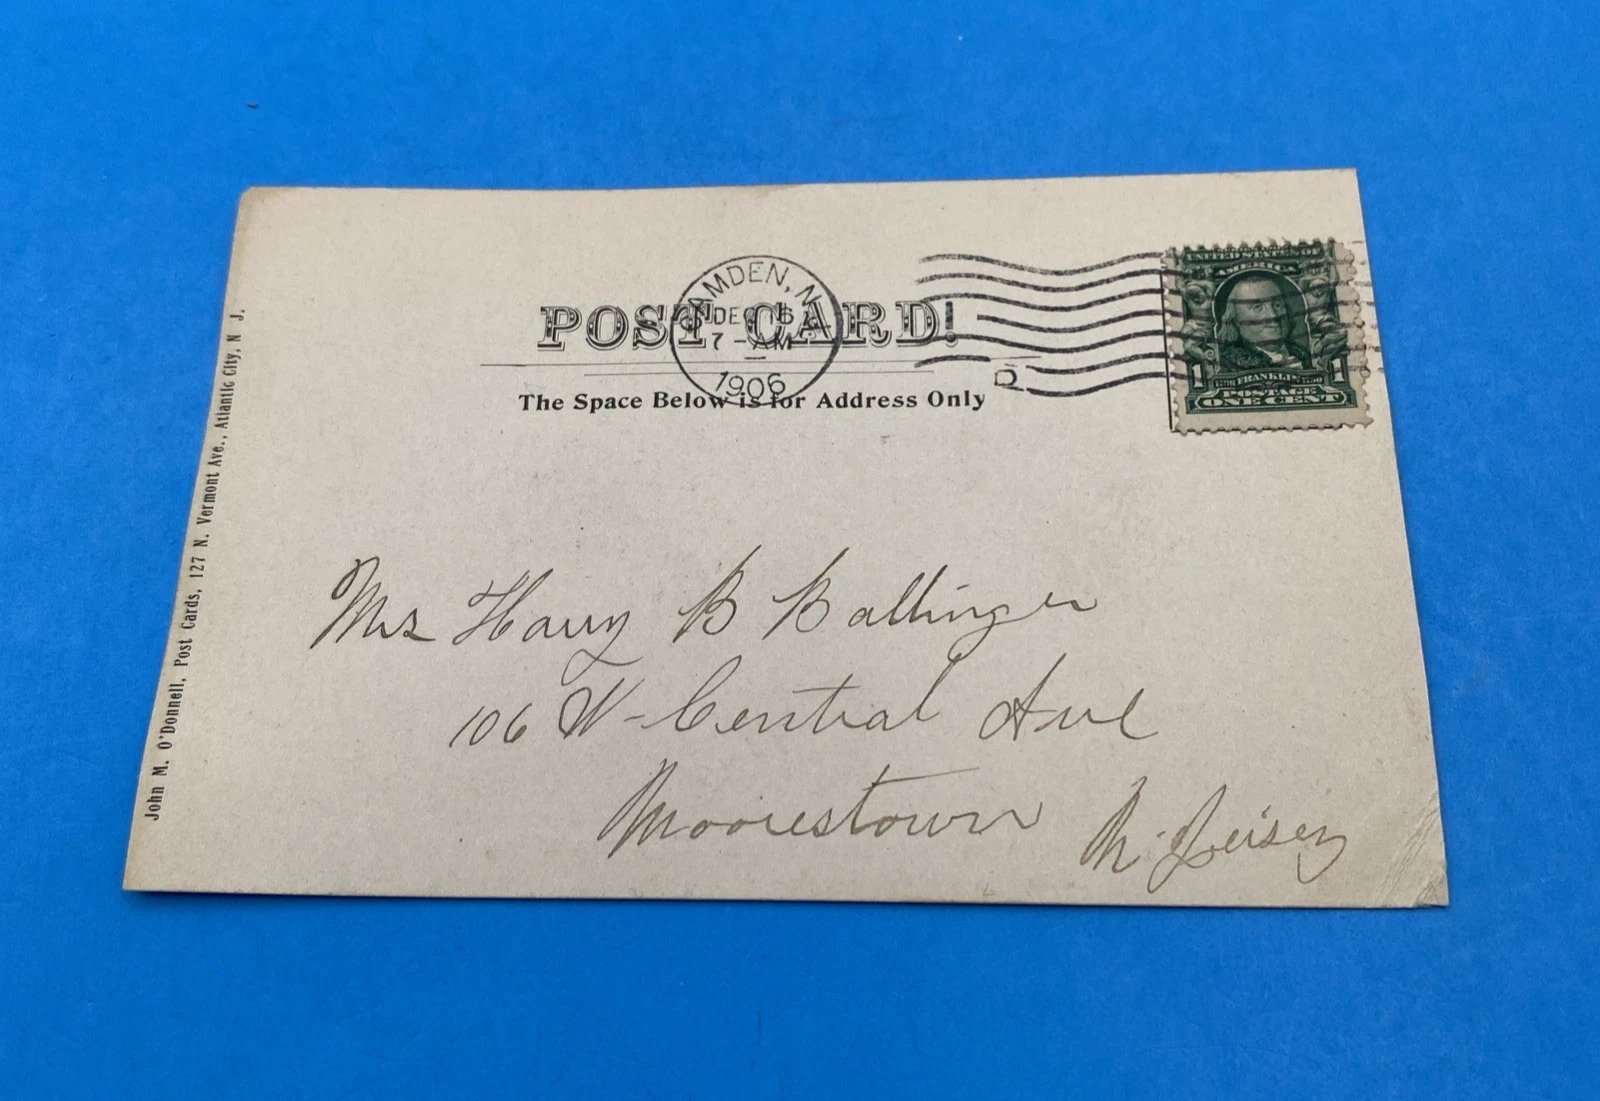 POST CARD!
CAMDEN, N.J.
DEC 16
7 - AM
1906
D
UNITED STATES OF
AMERICA
FRANKLIN
POSTAGE
1 1
ONE CENT
The Space Below is for Address Only
Mrs Harry B Ballinger
106 W - Central Ave
Moorestown N. Jersey
John M. O'Donnell, Post Cards, 127 N. Vermont Ave., Atlantic City, N J.